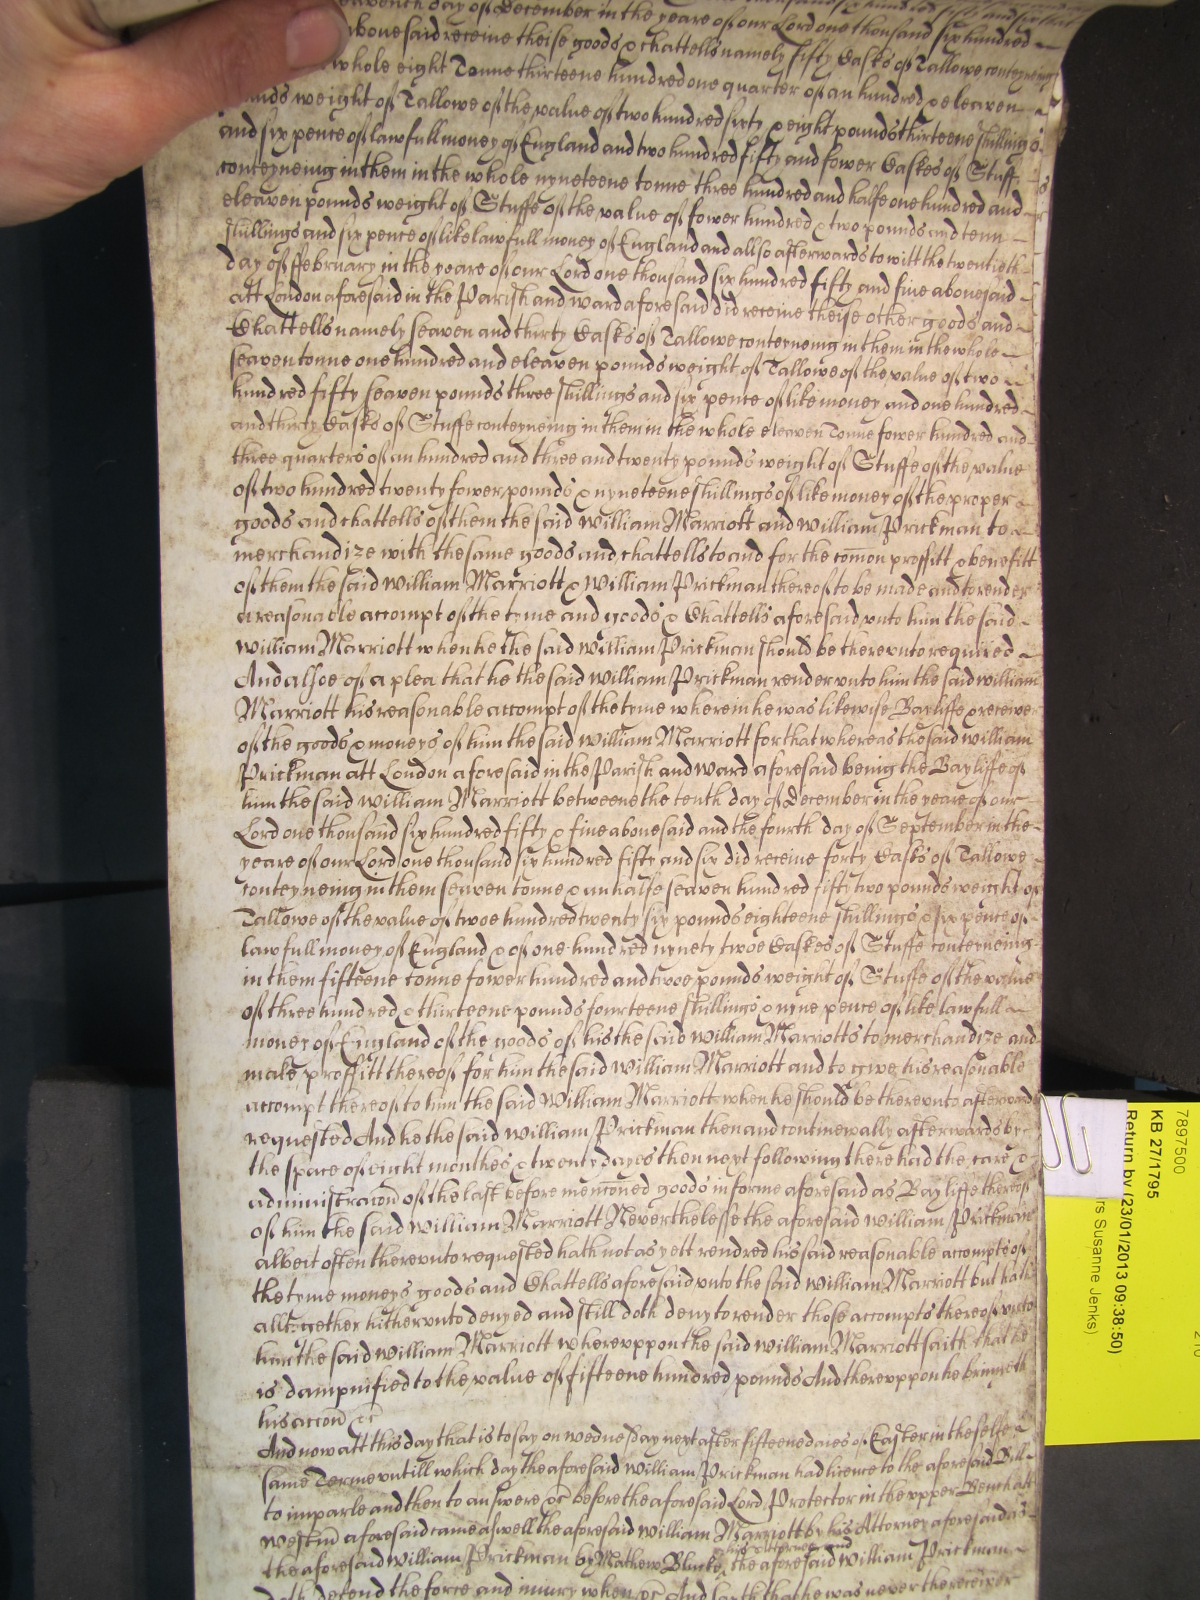 day of December in the yeare of our Lord one thousand six hundred
abovesaid receive theise goods & chattells namely fifty Casks of Tallowe conteyneing
whole eight Tonne thirteene hundred one quarter of an hundred & eleaven
weight of Tallowe of the value of two hundred sixty & eight pounds thirteene shillings
and six pence of lawfull money of England and two hundred fifty and fower Caskes of Stuffe
conteyneing in them in the whole nyneteene tonne three hundred and halfe one hundred and
eleaven pounds weight of Stuffe of the value of fower hundred & two pounds and tenn
shillings and six pence of like lawfull money of England and allso afterwards to witt the twentieth
day of ffebruary in the yeare of our Lord one thousand six hundred fifty and five abovesaid
att London aforesaid in the Parish and ward aforesaid did receive theise other goods and
Chattells namely seaven and thirty Casks of Tallowe conteyneing in them in the whole
seaven tonne one hundred and eleaven pounds weight of Tallowe of the value of two
hundred fifty seaven pounds three shillings and six pence of like money and one hundred
and thirty Casks of Stuffe conteyneing in them in the whole eleaven Tonne fower hundred and
three quarters of an hundred and three and twenty pounds weight of Stuffe of the value
of two hundred twenty fower pounds & nyneteene shillings of like money of the proper
goods and chattells of them the said William Marriott and William Prickman to
merchandize with the same goods and chattells to and for the com̄on proffitt & benefitt
of them the said William Marriott & William Prickman thereof to be made and to render
a reasonable accompt of the tyme and goods & Chattells aforesaid unto him the said
William Marriott when he the said William Prickman should be thereunto required
And alsoe of a plea that he the said William Prickman render unto him the said William
Marriott his reasonable accompt of the tyme wherein he was likewise Bayliffe & receiver
of the goods & moneys of him the said William Marriott for that whereas the said William
Prickman att London aforesaid in the Parish and ward aforesaid being the Bayliffe of
him the said William Marriott betweene the tenth day of December in the yeare of our
Lord one thousand six hundred fifty & five abovesaid and the fourth day of September in the
yeare of our Lord one thousand six hundred fifty and six did receive forty Casks of Tallowe
conteyneing in them seaven tonne & an halfe seaven hundred fifty two pounds weight of
Tallowe of the value of twoe hundred twenty six pounds eighteene shillings & six pence of
lawfull money of England & of one hundred nynety twoe Caskes of Stuffe conteyneing
in them fifteene tonne fower hundred and twoe pounds weight of Stuffe of the value
of three hundred & thirteene pounds fourteene shillings & nyne pence of like lawfull
money of England of the goods of his the said William Marriotts to merchandize and
make proffitt thereof for him the said William Marriott and to give his reasonable
accompt thereof to him the said William Marriott when he should be thereunto afterwards
requested And he the said William Prickman then and continewally afterwards by
the space of eight monthes & twenty dayes then next following there had the care &
administrac̄on of the last before menc̄oned goods in forme aforesaid as Bayliffe thereof
of him the said William Marriott Neverthelesse the aforesaid William Prickman
albeit often thereunto requested hath not as yett rendred his said reasonable accompts of
the tyme moneys goods and Chattells aforesaid unto the said William Marriott but hath
alltogether hitherunto denyed and still doth deny to render those accompts thereof unto
him the said William Marriott whereuppon the said William Marriott saith that he
is dampnified to the value of fifteene hundred pounds And thereuppon he bringeth
his acc̄on &c
And now att this day that is to say on wednesday next after fifteene daies of Easter in the selfe
same Terme untill which day the aforesaid William Prickman had licence to the aforesaid Bill
to imparle and then to answere &c before the aforesaid Lord Protector in the upper Bench att
Westm̄ aforesaid came aswell the aforesaid William Marriott by his Attorney aforesaid as
the aforesaid William Prickman by Mathew Blucke his Attorney and the aforesaid William Prickman
doth defend the force and iniury when &c And saith that he was never the receiver
7897500
KB 27/1795
Return by (23/01/2013 09:38:50)
rs Susanne Jenks)